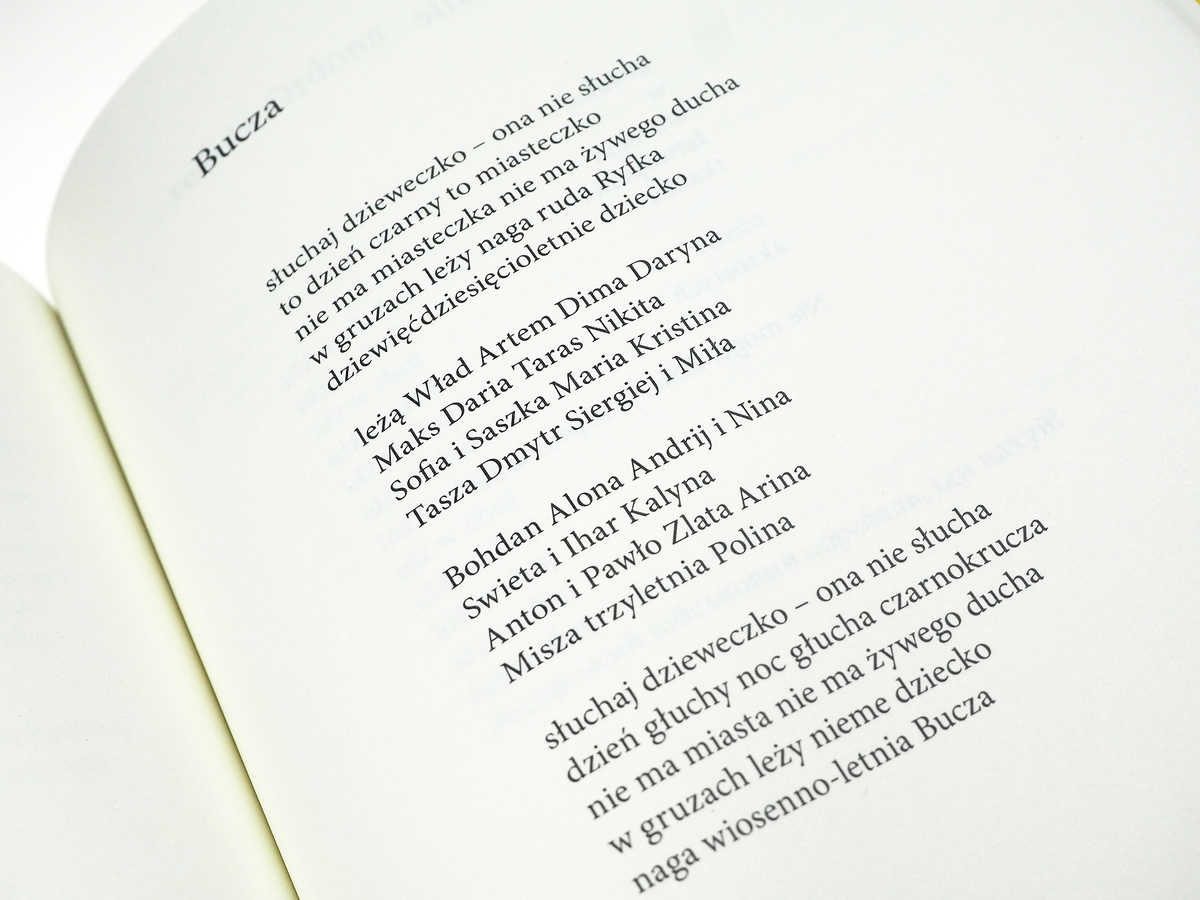 Bucza
słuchaj dzieweczko – ona nie słucha
to dzień czarny to miasteczko
nie ma miasteczka nie ma żywego ducha
w gruzach leży naga ruda Ryfka
dziewięćdziesięcioletnie dziecko
leżą Wład Artem Dima Daryna
Maks Daria Taras Nikita
Sofia i Saszka Maria Kristina
Tasza Dmytr Siergiej i Miła
Bohdan Alona Andrij i Nina
Swieta i Ihar Kalyna
Anton i Pawło Zlata Arina
Misza trzyletnia Polina
słuchaj dzieweczko – ona nie słucha
dzień głuchy noc głucha czarnokrucza
nie ma miasta nie ma żywego ducha
w gruzach leży nieme dziecko
naga wiosenno-letnia Bucza